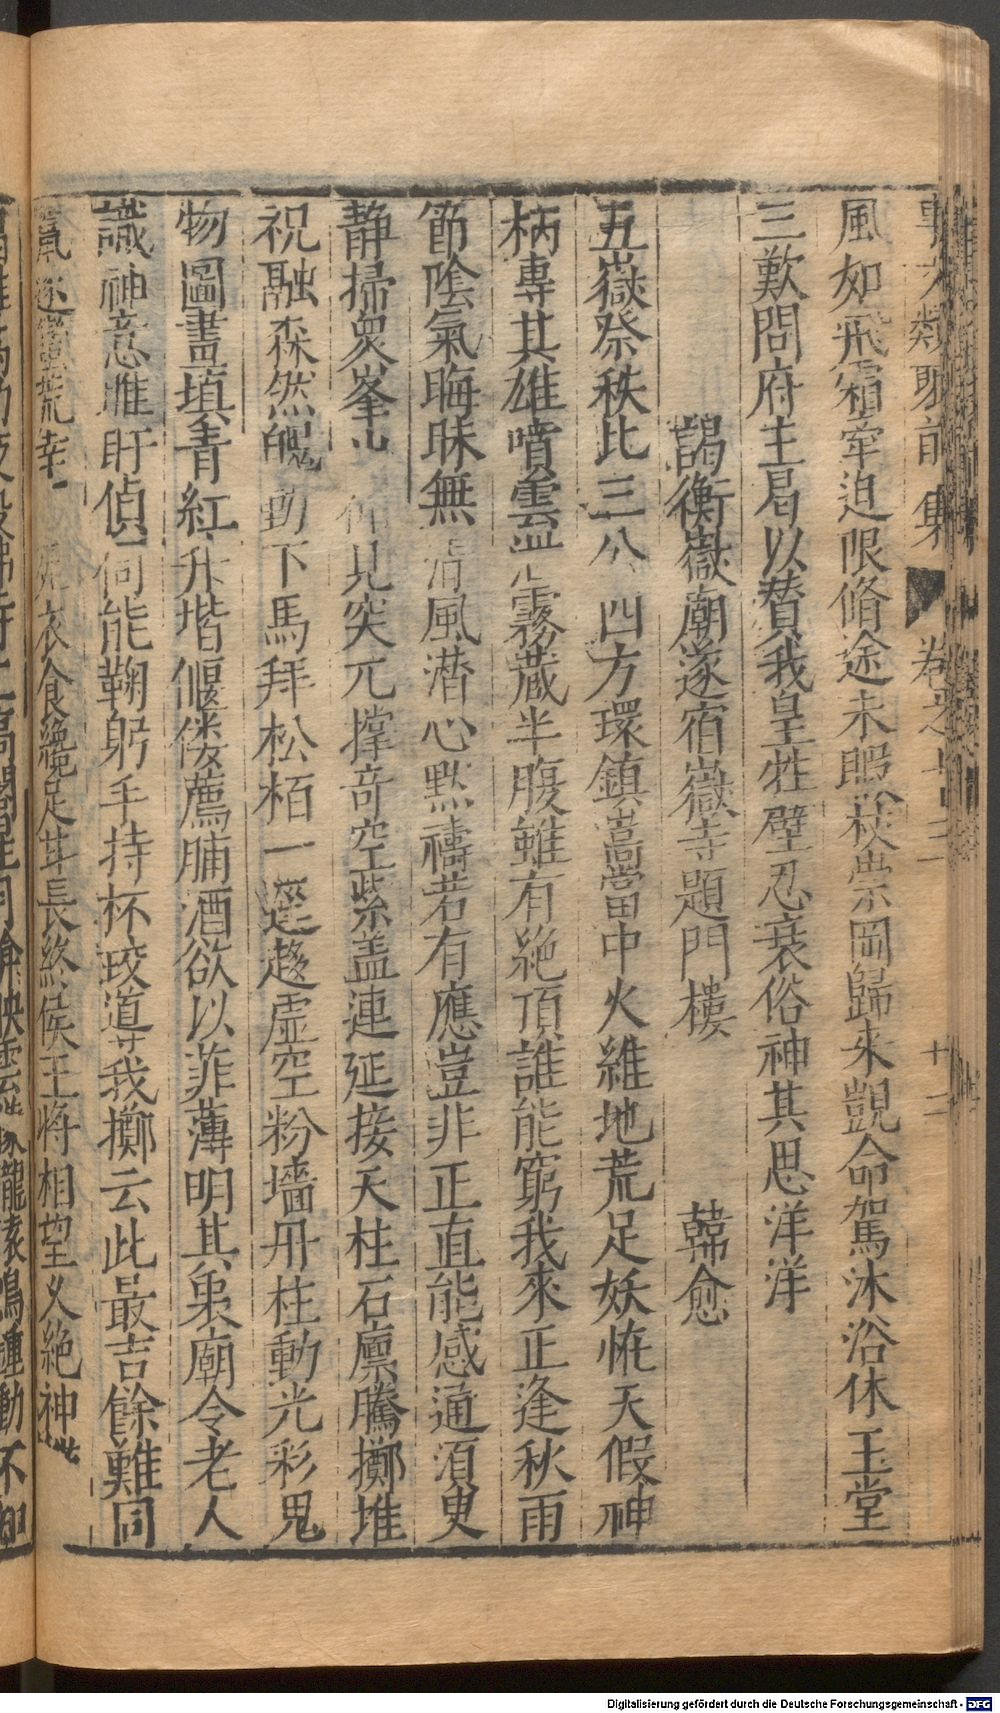 事文類聚前集 卷之 十二
風如飛霜寧迫限脩途未暇 崇岡歸來覬命駕沐浴休玉堂
三歎問府主曷以贊我皇牲璧忍衰俗神其思洋洋
謁衡嶽廟遂宿嶽寺題門樓 韓愈
五嶽祭秩比三公四方環鎮嵩當中火維地荒足妖恠天假神
柄專其雄噴雲泄霧藏半腹雖有絕頂誰能窮我來正逢秋雨
節陰氣晦昧無清風潛心默禱若有應豈非正直能感通須臾
静掃衆峯出仰見突兀撐奇空紫盖連延接天柱石廪騰擲堆
祝融森然魄動下馬拜松栢一逕趍靈宮粉墻丹柱動光彩鬼
物圖畫填青紅升堦傴僂薦脯酒欲以菲薄明其衷廟令老人
識神意睢盱偵伺能鞠躬手持杯珓導我擲云此最吉餘難同
竄逐蠻荒幸 衣食纔足甘長終侯王將相望久絕神
Digitalisierung gefördert durch die Deutsche Forschungsgemeinschaft - DFG